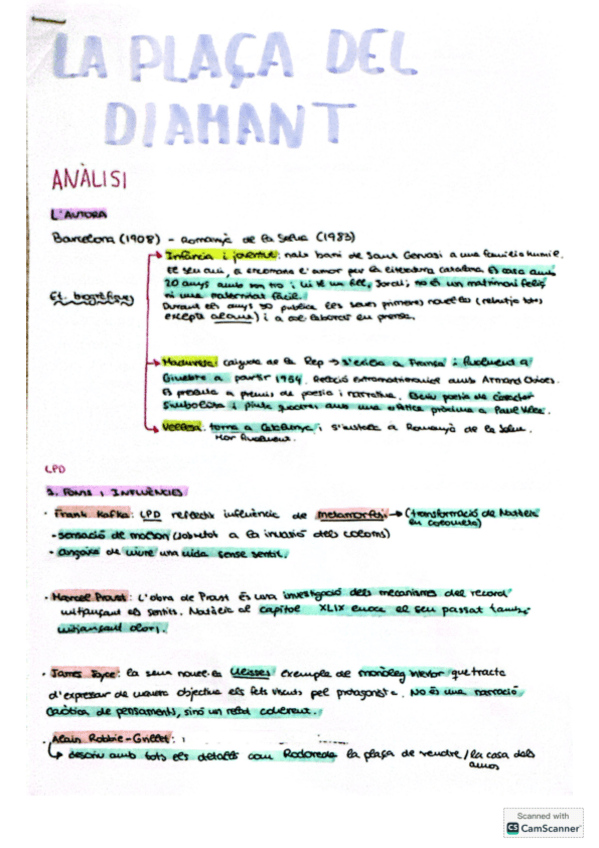 LA PLAÇA DEL
DIAMANT
ANÀLISI
L'AUTORA
Barcelona (1908) - Romanyà de la Selva (1983)
Infància i joventut: nais barri de Sant Gervasi a una família humil.
El seu avi, a encomana l'amor per la literatura catalana. Es casa amb
20 anys amb son tio i té un fill, Jordi; no és un matrimoni feliç
ni una maternitat fàcil.
Et. biogràfiques
Durant els anys 30 publica les seves primeres novel·les (rebutja totes
excepte Aloma) i a col·laborar en premsa.
Maduresa: caiguda de la Rep → s'exilia a França i finalment a
Ginebra a partir 1954. Relació extramatrimonial amb Armand Obiols.
Es presenta a premis de poesia i narrativa. Escriu poesia de caràcter
simbolista i pinta quadres amb una estètica pròxima a Paul Klee.
Vellesa: torna a Catalunya i s'instal·la a Romanyà de la Selva.
Mor finalment.
LPD
2. FONTS I INFLUÈNCIES
· Frank Kafka: LPD reflecteix influència de metamorfosi → (transformació de Natàlia
en colometa)
- sensació de malson (sobretot a la invasió dels coloms)
- angoixa de viure una vida sense sentit.
· Marcel Proust: L'obra de Proust és una investigació dels mecanismes del record
mitjançant els sentits. Natàlia al capítol XLIX evoca el seu passat també
mitjançant olors.
· James Joyce: la seva novel·la Ulisses exemple de monòleg interior que tracta
d'expressar de manera objectiva els fets viscuts pel protagonista. No és una narració
caòtica de pensaments, sinó un relat coherent.
· Alain Robbe-Grillet:
↳ descriu amb tots els detalls com Rodoreda la plaça de vendre/la casa dels
amos
Scanned with
CS CamScanner